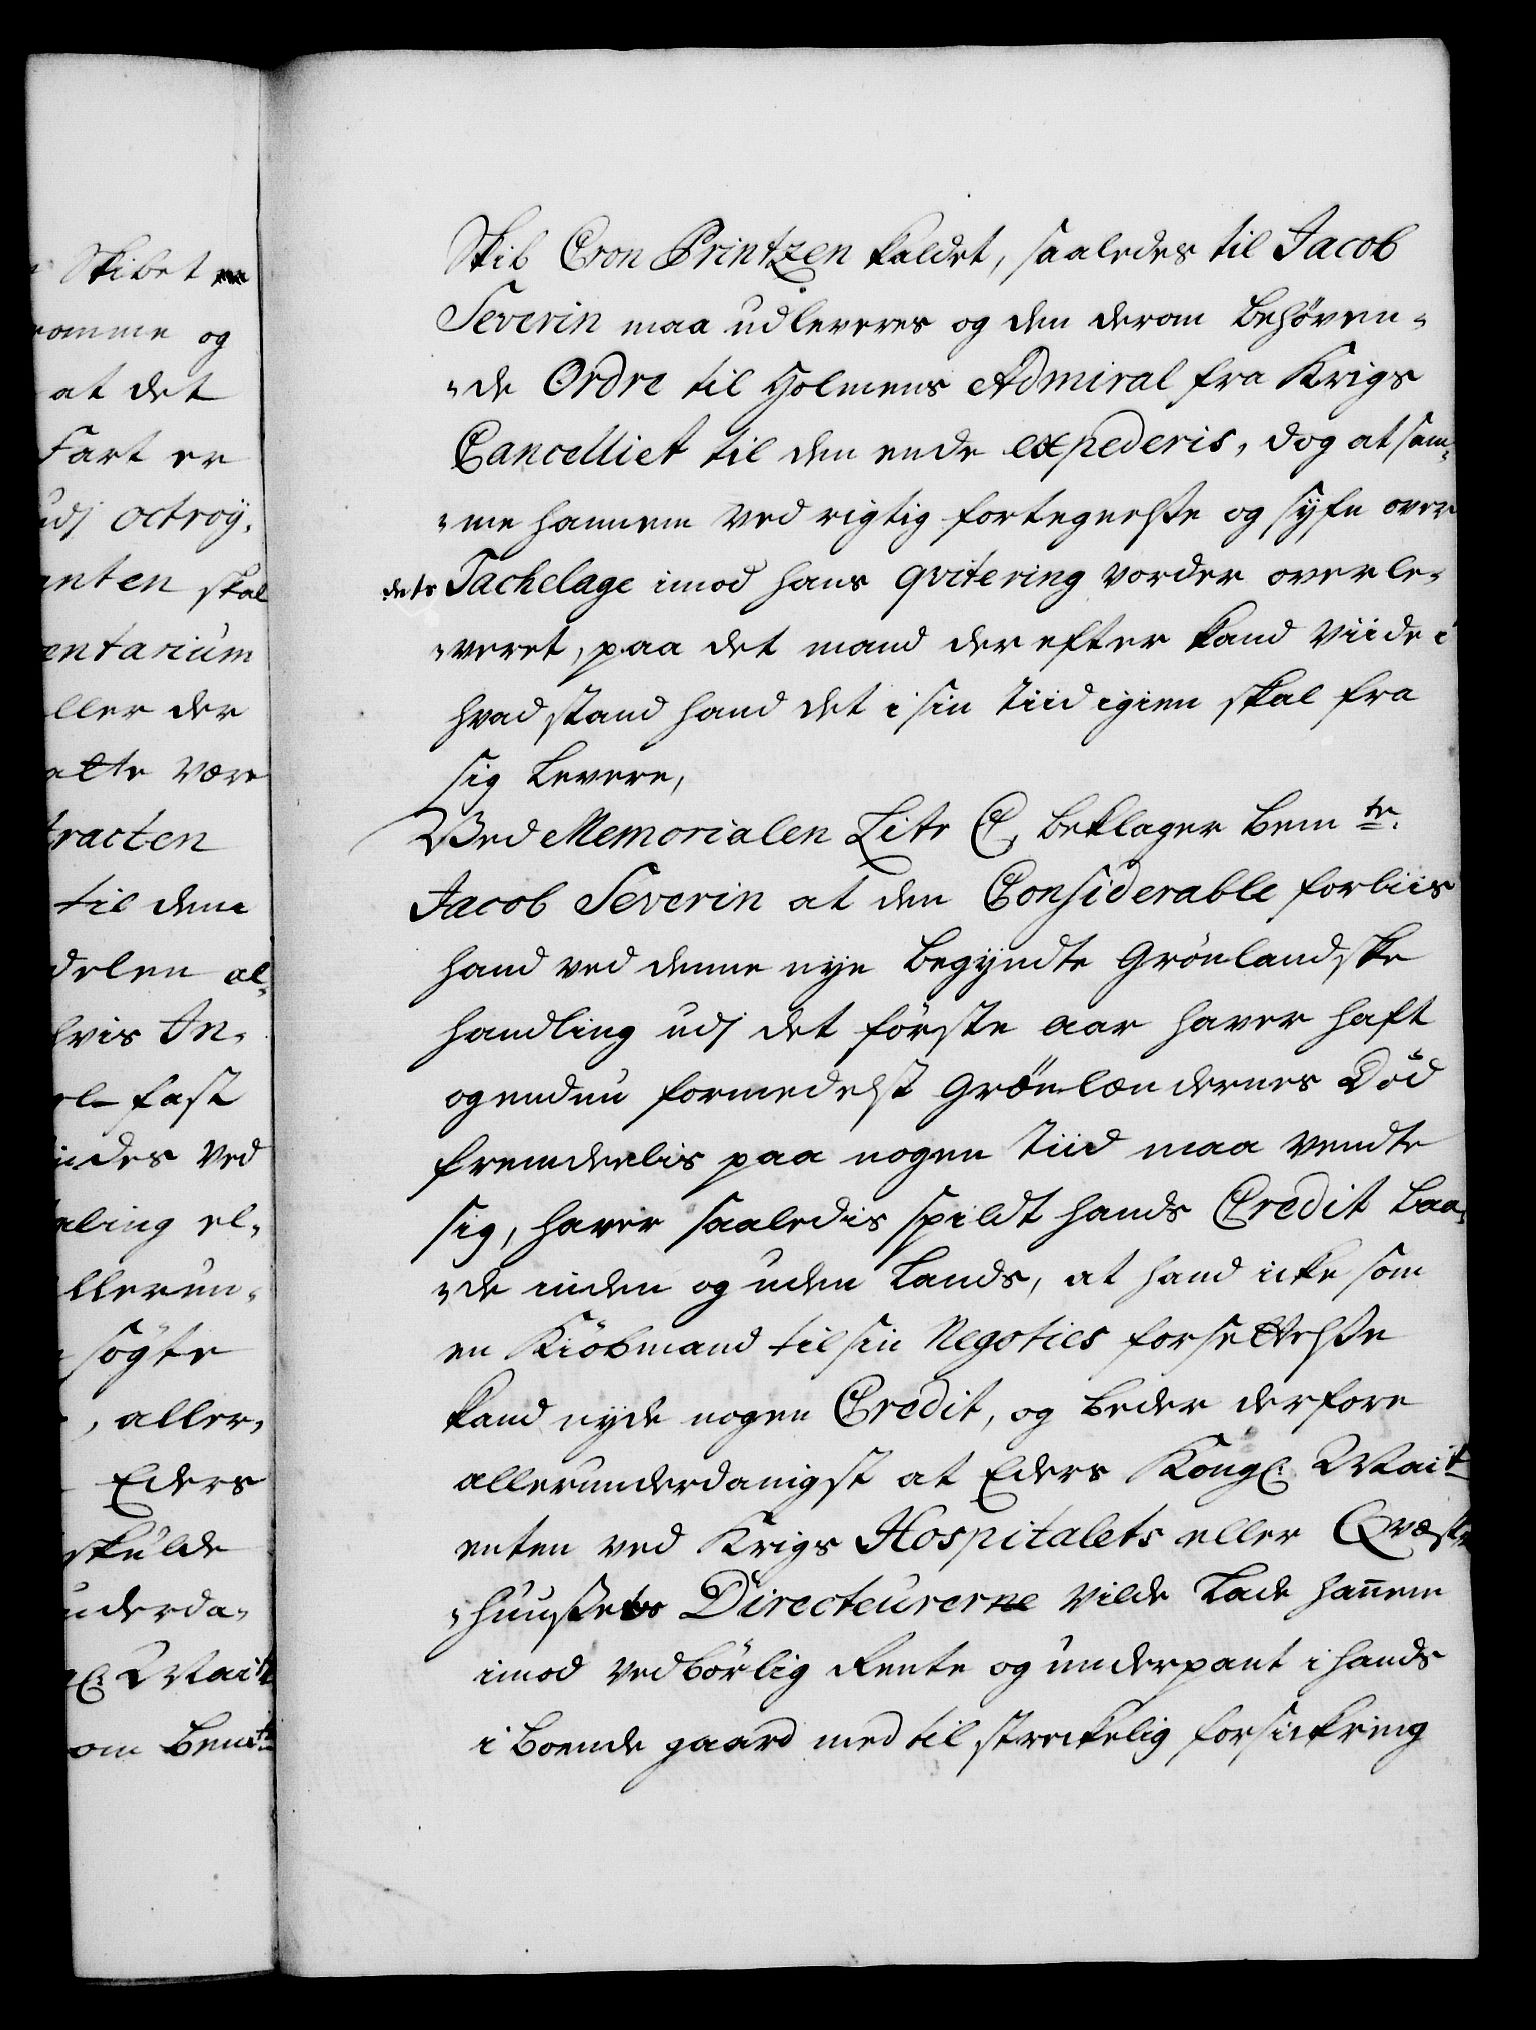 Skibet
omme og
at det
Fart er
udj octroy,
anten skal
entarium
ller der
atte være
tracten
til dem
delen al¬
hvis In¬
el fast
indes ved
aling el¬
llerun¬
søgte
, aller¬
Eders
skulde
underda¬
gl: Mait
om bemte
Skib Cron Printzen kaldet, saaledes til Jacob
Severin maa udleveres og den derom behöven¬
¬de Ordre til Holmens Admiral fra Krigs
Cancelliet til den ende expederis, dog at sam¬
¬me hannem ved rigtig fortegnelsse og syfn over
dets Tachelage imod hans qvitering vorder overle¬
¬veret, paa det mand der efter kand viide i
hvad stand hand det i sin tiid igien skal fra
sig levere,
Ved Memorialen Litr C, beklager bemte.
Jacob Severin at den Considerable forliis
hand ved denne nye begyndte Grönlandske
handling udj det förste aar haver haft
og endnu formedelst Grönlændernes Död
fremdeelis paa nogen tiid maa vendte
sig, haver saaledis spildt hands Credit baa¬
¬de inden og uden Lands, at hand icke som
en Kiöbmand til sin Negoties forsettelsse
kand nyde nogen Credit, og beder derfore
allerunderdanigst at Eders Kongl: Mait
enten ved Krigs Hospitalets eller Qvæst¬
¬huussets Directeurerne vilde lade hannem
imod vedbörlig Rente og underpant i hands
i boende gaard med til streckelig forsickring